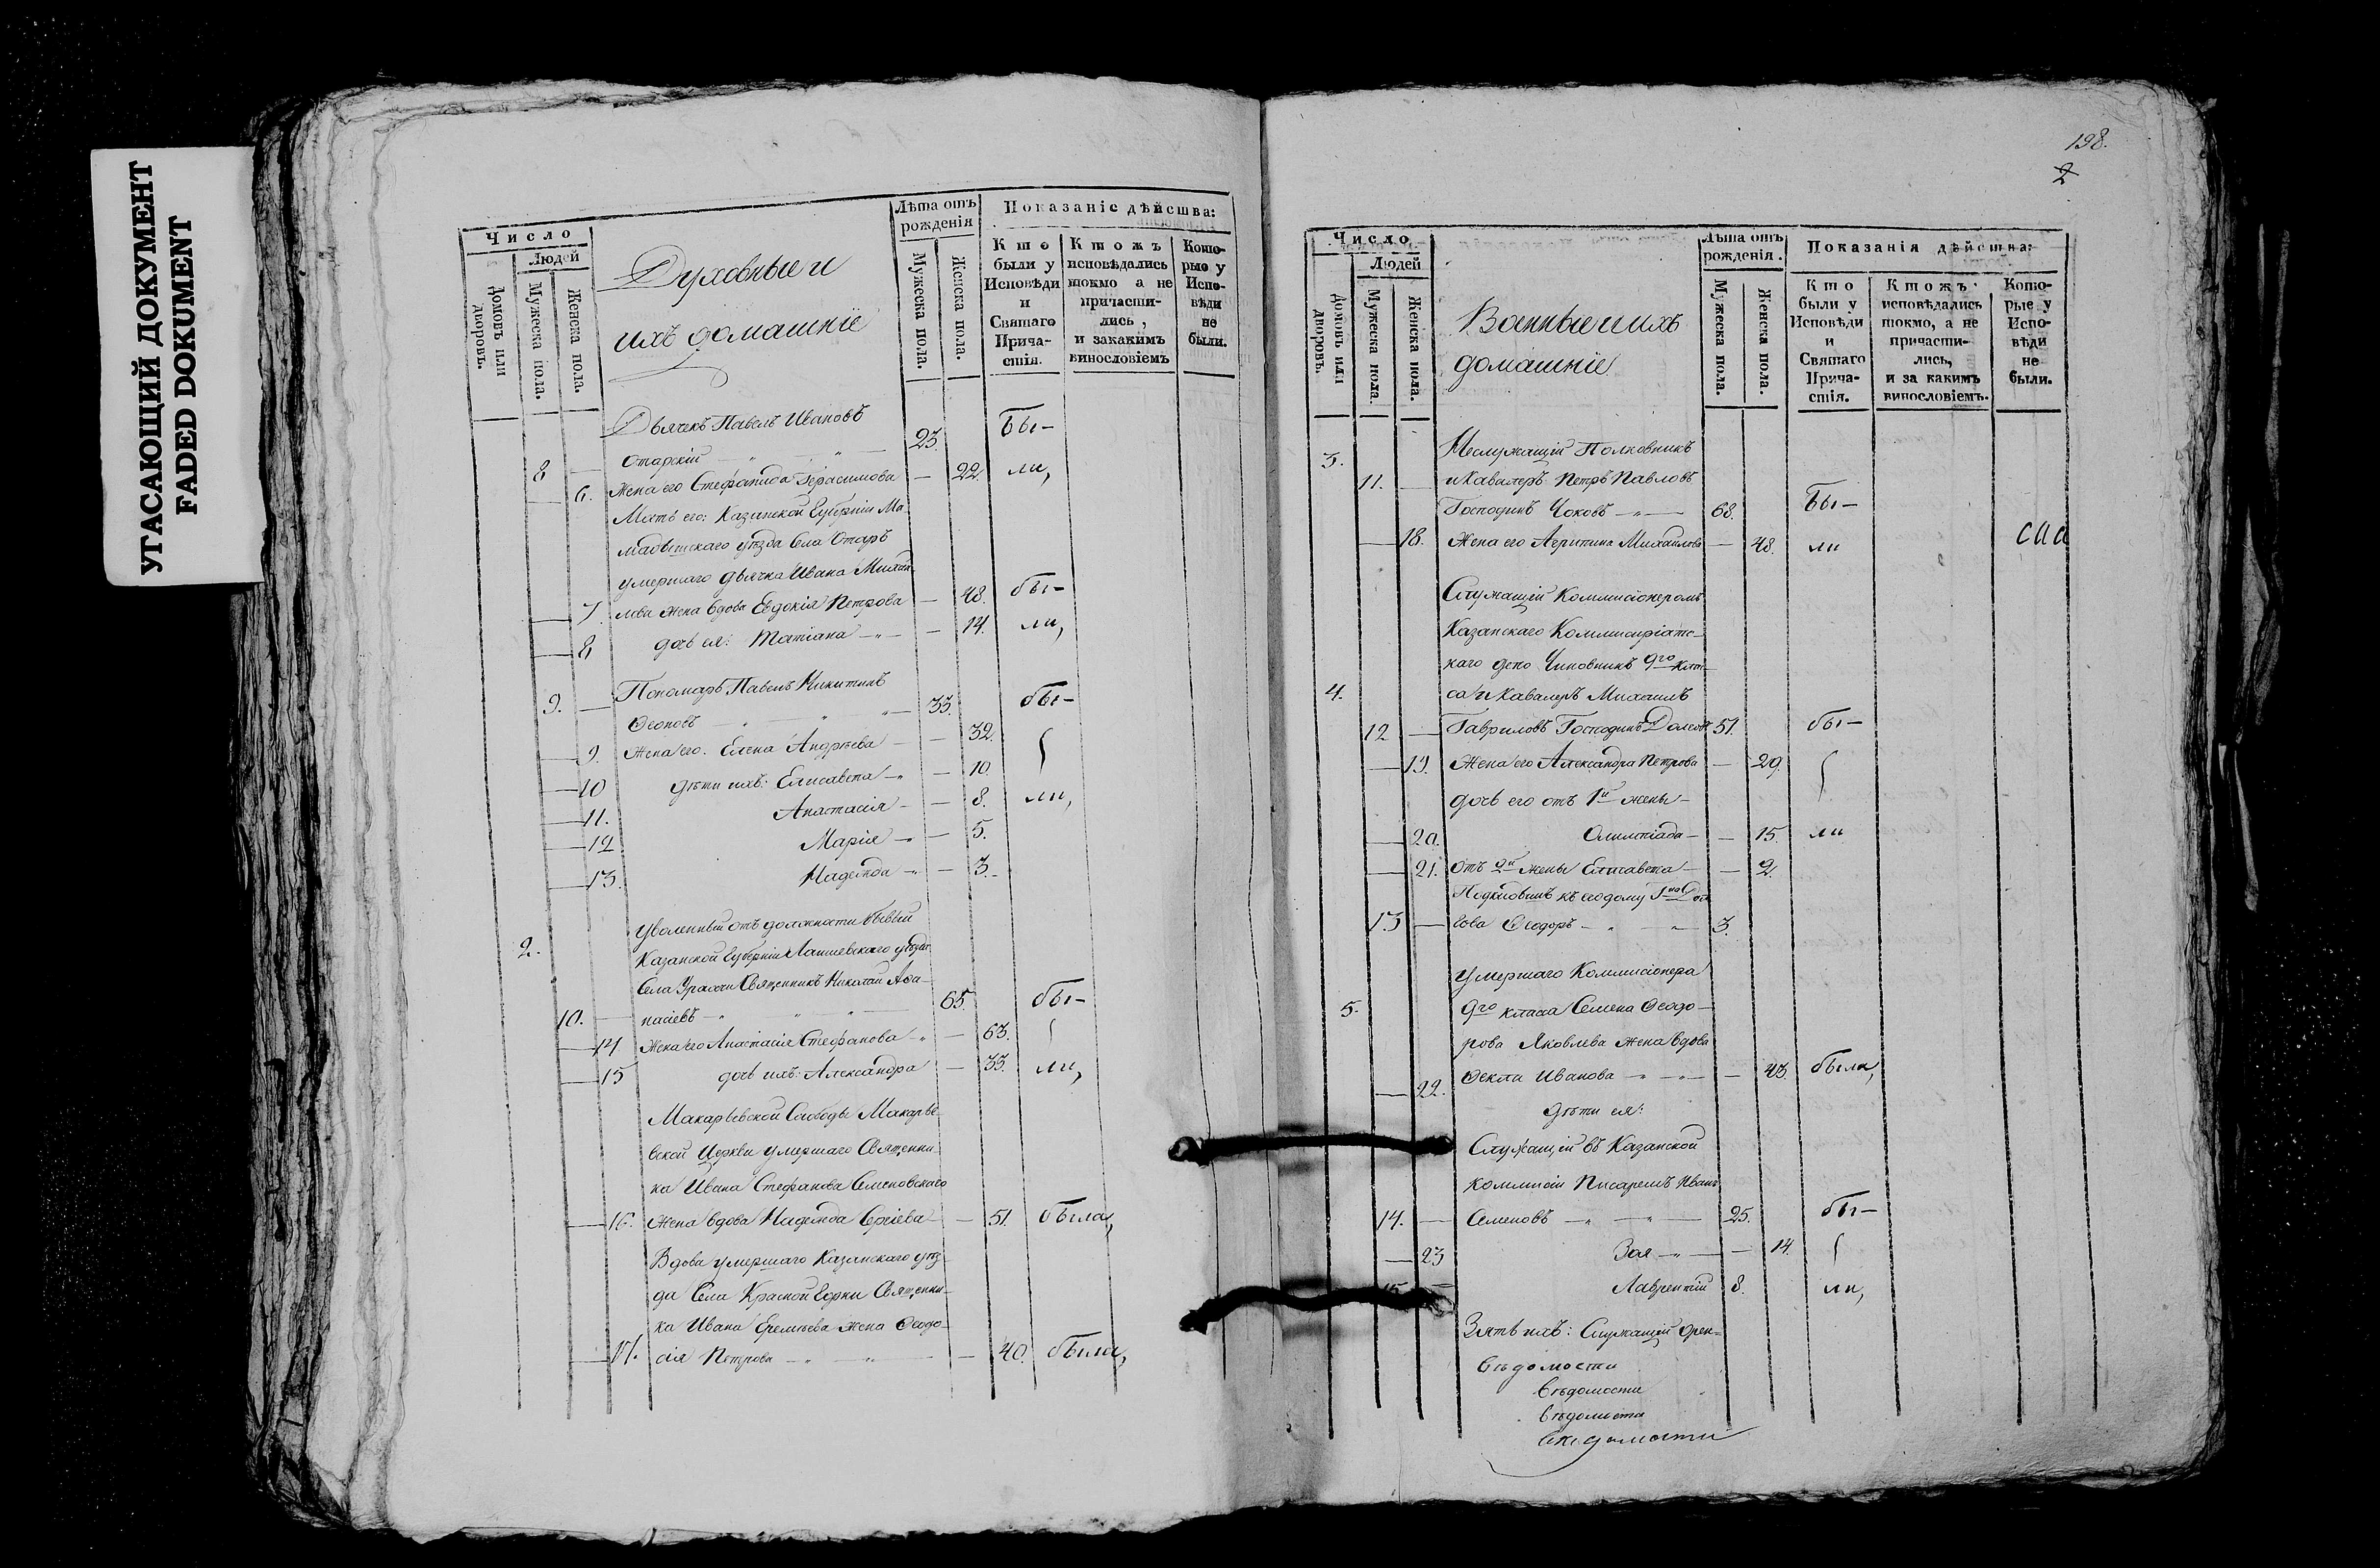 УГАСАЮЩИЙ ДОКУМЕНТ
FADED DOKUMENT
Число
Людей
Домовъ или дворовъ.
Мужеска пола.
Женска пола.
Духовныеи
ихъ домашніе
Лѣта отъ рожденія
Мужеска пола.
Женска пола.
Показаніе дѣйства:
Кто были у Исповѣди и Святаго Причастія.
Ктожъ исповѣдались токмо а не причастились, и закакимъ винословіемъ
Которые у Исповѣди не были.
Дьячекъ Павелъ Ивановъ
8 — Отарскій — „ — „ — 23. Бы-
— 6. Жена его Стефанида Герасимова — 22. ли,
Мать его: Казанской Губерніи Ма
мадышскаго уѣзда Села Отаръ
умершаго дьячка Ивана Михай
— 7. лова жена вдова Евдокія Петрова — 48. бы-
— 8 дочь ея: Татіана — „ — 14. ли,
Пономарь Павелъ Никитинъ
9. — Ѳеоновъ — „ — „ — „ — 33. бы-
— 9. Жена его. Елена Андреева — 32.
— 10 дѣти ихъ: Елисавета — „ — 10.
— 11. Анастасія — 8. ли,
— 12 Марія — „ — 5.
— 13. Надежда — „ — 3.
уволенный отъ должности бывый
2. Казанской Губерніи Лаишевскаго уѣзда
Села Священникъ Николай Аѳа-
10. — насіевъ — „ „ „ 65. бы-
— 14. Жена его Анастасія Стефанова — „ — 63.
— 15 дочь ихъ: Александра — 33. ли,
Макарьевской Слободы Макарье-
вской Церкви умершаго Священни-
ка Ивана Стефанова Семеновскаго
— 16. Жена вдова Надежда Сергіева — 51. была,
Вдова умершаго Казанскаго уѣз-
да Села Красной Горки Священни-
ка Ивана Еремѣева жена Ѳеодо-
— 17. сія Петрова — „ — „ — 40. была,
198.
2
Число
Людей
Домовъ или дворовъ.
Мужеска пола.
Женска пола.
Военные и ихъ
домашніе
Лѣта отъ рожденія.
Мужеска пола.
Женска пола.
Показанія дѣйства:
Кто были у Исповѣди и Святаго Причастія.
Ктожъ исповѣдались токмо, а не причастились, и за какимъ винословіемъ.
Которые у Исповѣди не были.
3. Неслужащій Полковникъ
11. — и Кавалеръ Петръ Павловъ
Господинъ Чоковъ — „ — 68. Бы-
— 18. Жена его Агрипина Михайлова — 48. ли
Служащій Коммисіонеромъ
Казанскаго Коммисаріатс-
каго депо Чиновникъ 9го клас-
4. са и Кавалеръ Михаилъ
12 — Гавриловъ Господинъ 51. бы-
— 19. Жена его Александра Петрова — 29.
дочь его отъ 1й жены —
— 20. Олимпіада — 15. ли
— 21. Отъ 2й жены Елисавета — 2.
къ его дому
13 — Ѳеодоръ — „ — „ — 3.
умершаго Коммисіонера
5. 9го класа Семена Ѳеодо-
рова Яковлева жена вдова
— 22. Ѳекла Иванова — „ — „ — 43. была,
дѣти ея:
Служащій въ Казанской
коммисіи Писаремъ Иванъ
14. — Семеновъ — „ — „ — 25. бы-
— 23 Зоя — „ — 14.
15 — Лаврентій 8. ли,
Зять ихъ: Служащій Орен-
Вѣдомости
вѣдомости
вѣдомости
вѣдомости